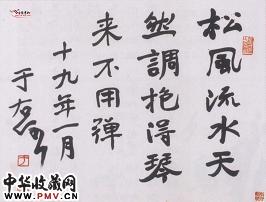 松風流水天
然調抱得琴
来不用彈
十九年一月
于右任
中华收藏网
WWW.PMV.CN